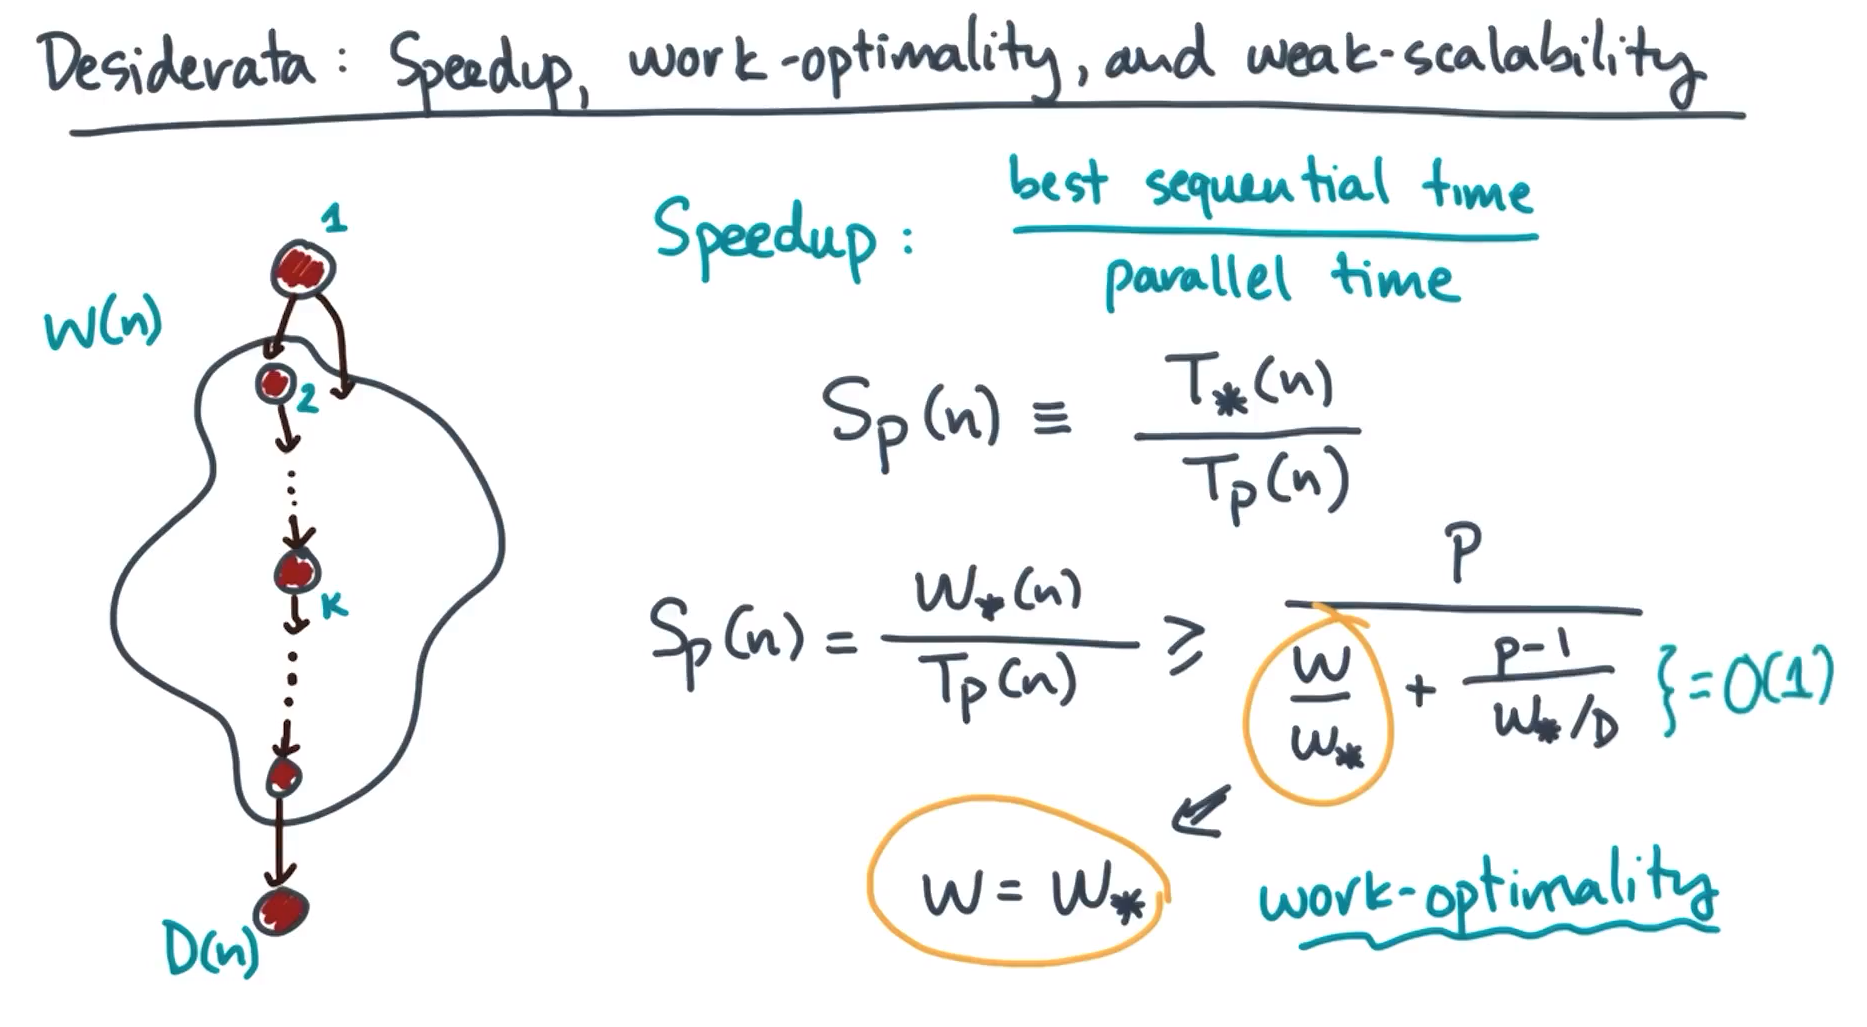 Desiderata: Speedup, work-optimality, and weak-scalability
Speedup: best sequential time / parallel time
S_p(n) ≡ T_*(n) / T_p(n)
S_p(n) = W_*(n) / T_p(n) ≥ p / (W/W_* + (p-1)/(W_*/D)) } = O(1)
W = W_*
work-optimality
W(n)
1
2
k
D(n)